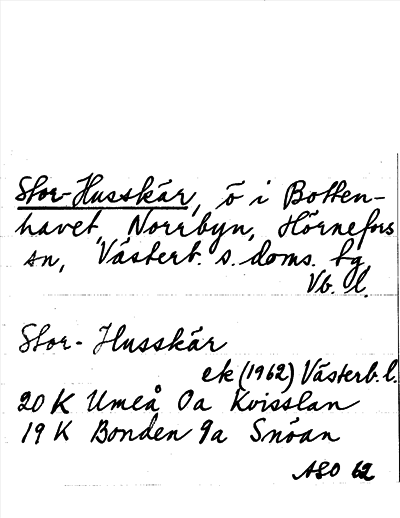 Stor-Husskär, ö i Botten-
havet, Norrbyn, Hörnefors
sn, Västerb. s. doms. tg
Vb. l.
Stor-Husskär
ek (1962) Västerb. l.
20 K Umeå 0a Kvisslan
19 K Bonden 9a Snöan
ASO 62